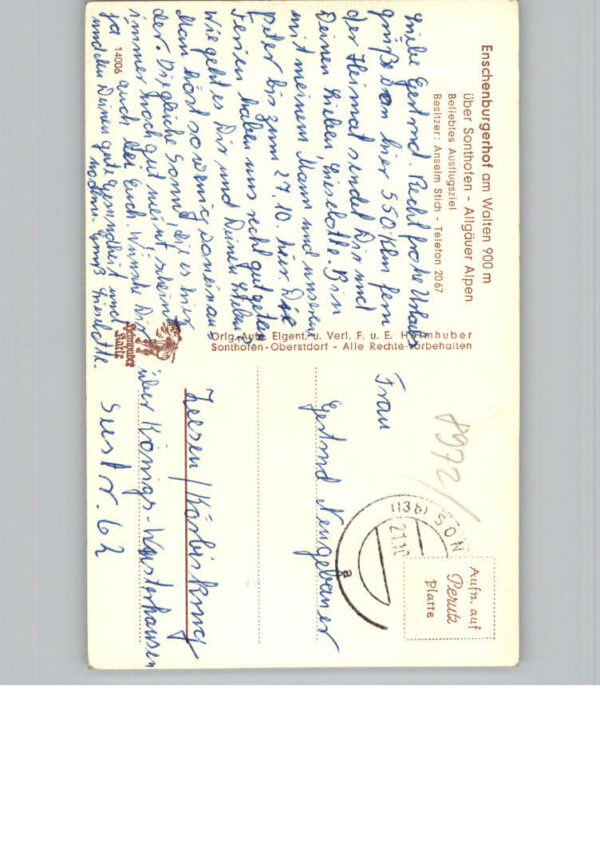 Enschenburgerhof am Walten 900 m
über Sonthofen - Allgäuer Alpen
Beliebtes Ausflugsziel
Besitzer: Anselm Stich - Telefon 2067
Liebe Gertrud. Recht frohe Urlaubs
grüße von hier 550 Klm fern
der Heimat sendet Dir und
Deinen Lieben, Liselotte. Bin
mit meinem Mann und unserem
Peter bis zum 27.10. hier. Die
Ferien haben uns recht gut getan
Wie geht es Dir und Deinen Lieben
Man hört so wenig voneinan
der. Die gleiche Sonne, die es hier
immer noch gut meint scheint
ja auch bei Euch. Wünsche Dir
und den Deinen gute Gesundheit und
Gruß Liselotte.
14006
Orig. Aufn. Eigent. u. Verl. F. u. E. Heimhuber
Sonthofen-Oberstdorf - Alle Rechte vorbehalten
Heimhuber
Karte
8972/
(13b) SON
21.10
a
Aufn. auf
Perutz
Platte
Frau
Gertrud Neugebauer
Zeesen/Körbiskrug
über Königs-Wusterhausen
Seestr. 62